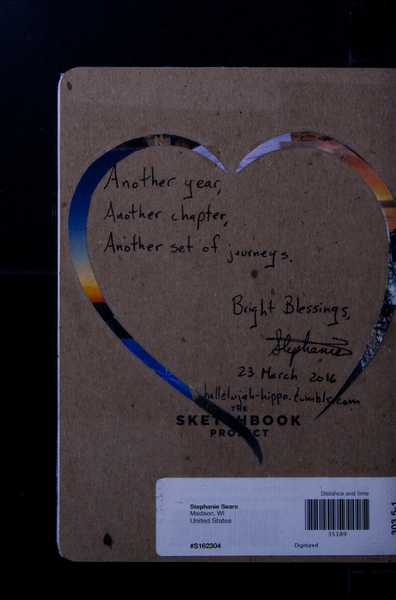 Another year,
Another chapter,
Another set of journeys.
Bright Blessings,
Stephanie
23 March 2016
hallelujah-hippo.tumblr.com
THE
SKETCHBOOK
PROJECT
Distance and time
Stephanie Sears
Madison, WI
United States
35189
#S162304
Digitized
303.5-1